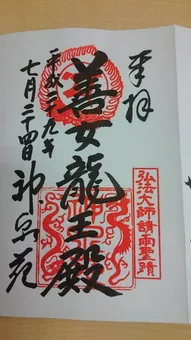 奉拝
弘法大師請雨聖蹟
善女龍王殿
平成二十九年
七月二十四日 神泉苑